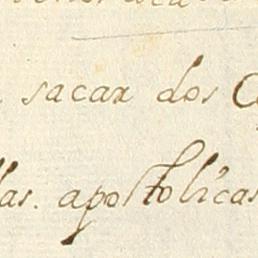 sacar dos
las. apostolicas